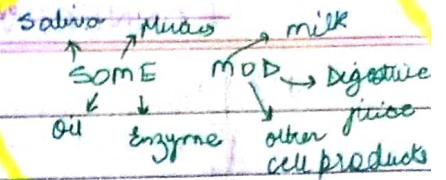 Saliva Mucus milk
SOME MOD Digestive
Oil Enzyme other juice
cell products